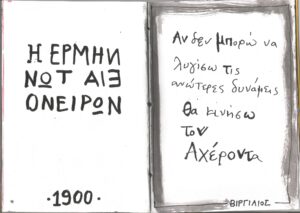 Η ΕΡΜΗΝ
ΝΩΤ ΑΙΞ
ΟΝΕΙΡΩΝ
·1900·
Αν δεν μπορώ να
λυγίσω τις
ανώτερες δυνάμεις
θα κινήσω
τον
Αχέροντα
ΒΙΡΓΙΛΙΟΣ